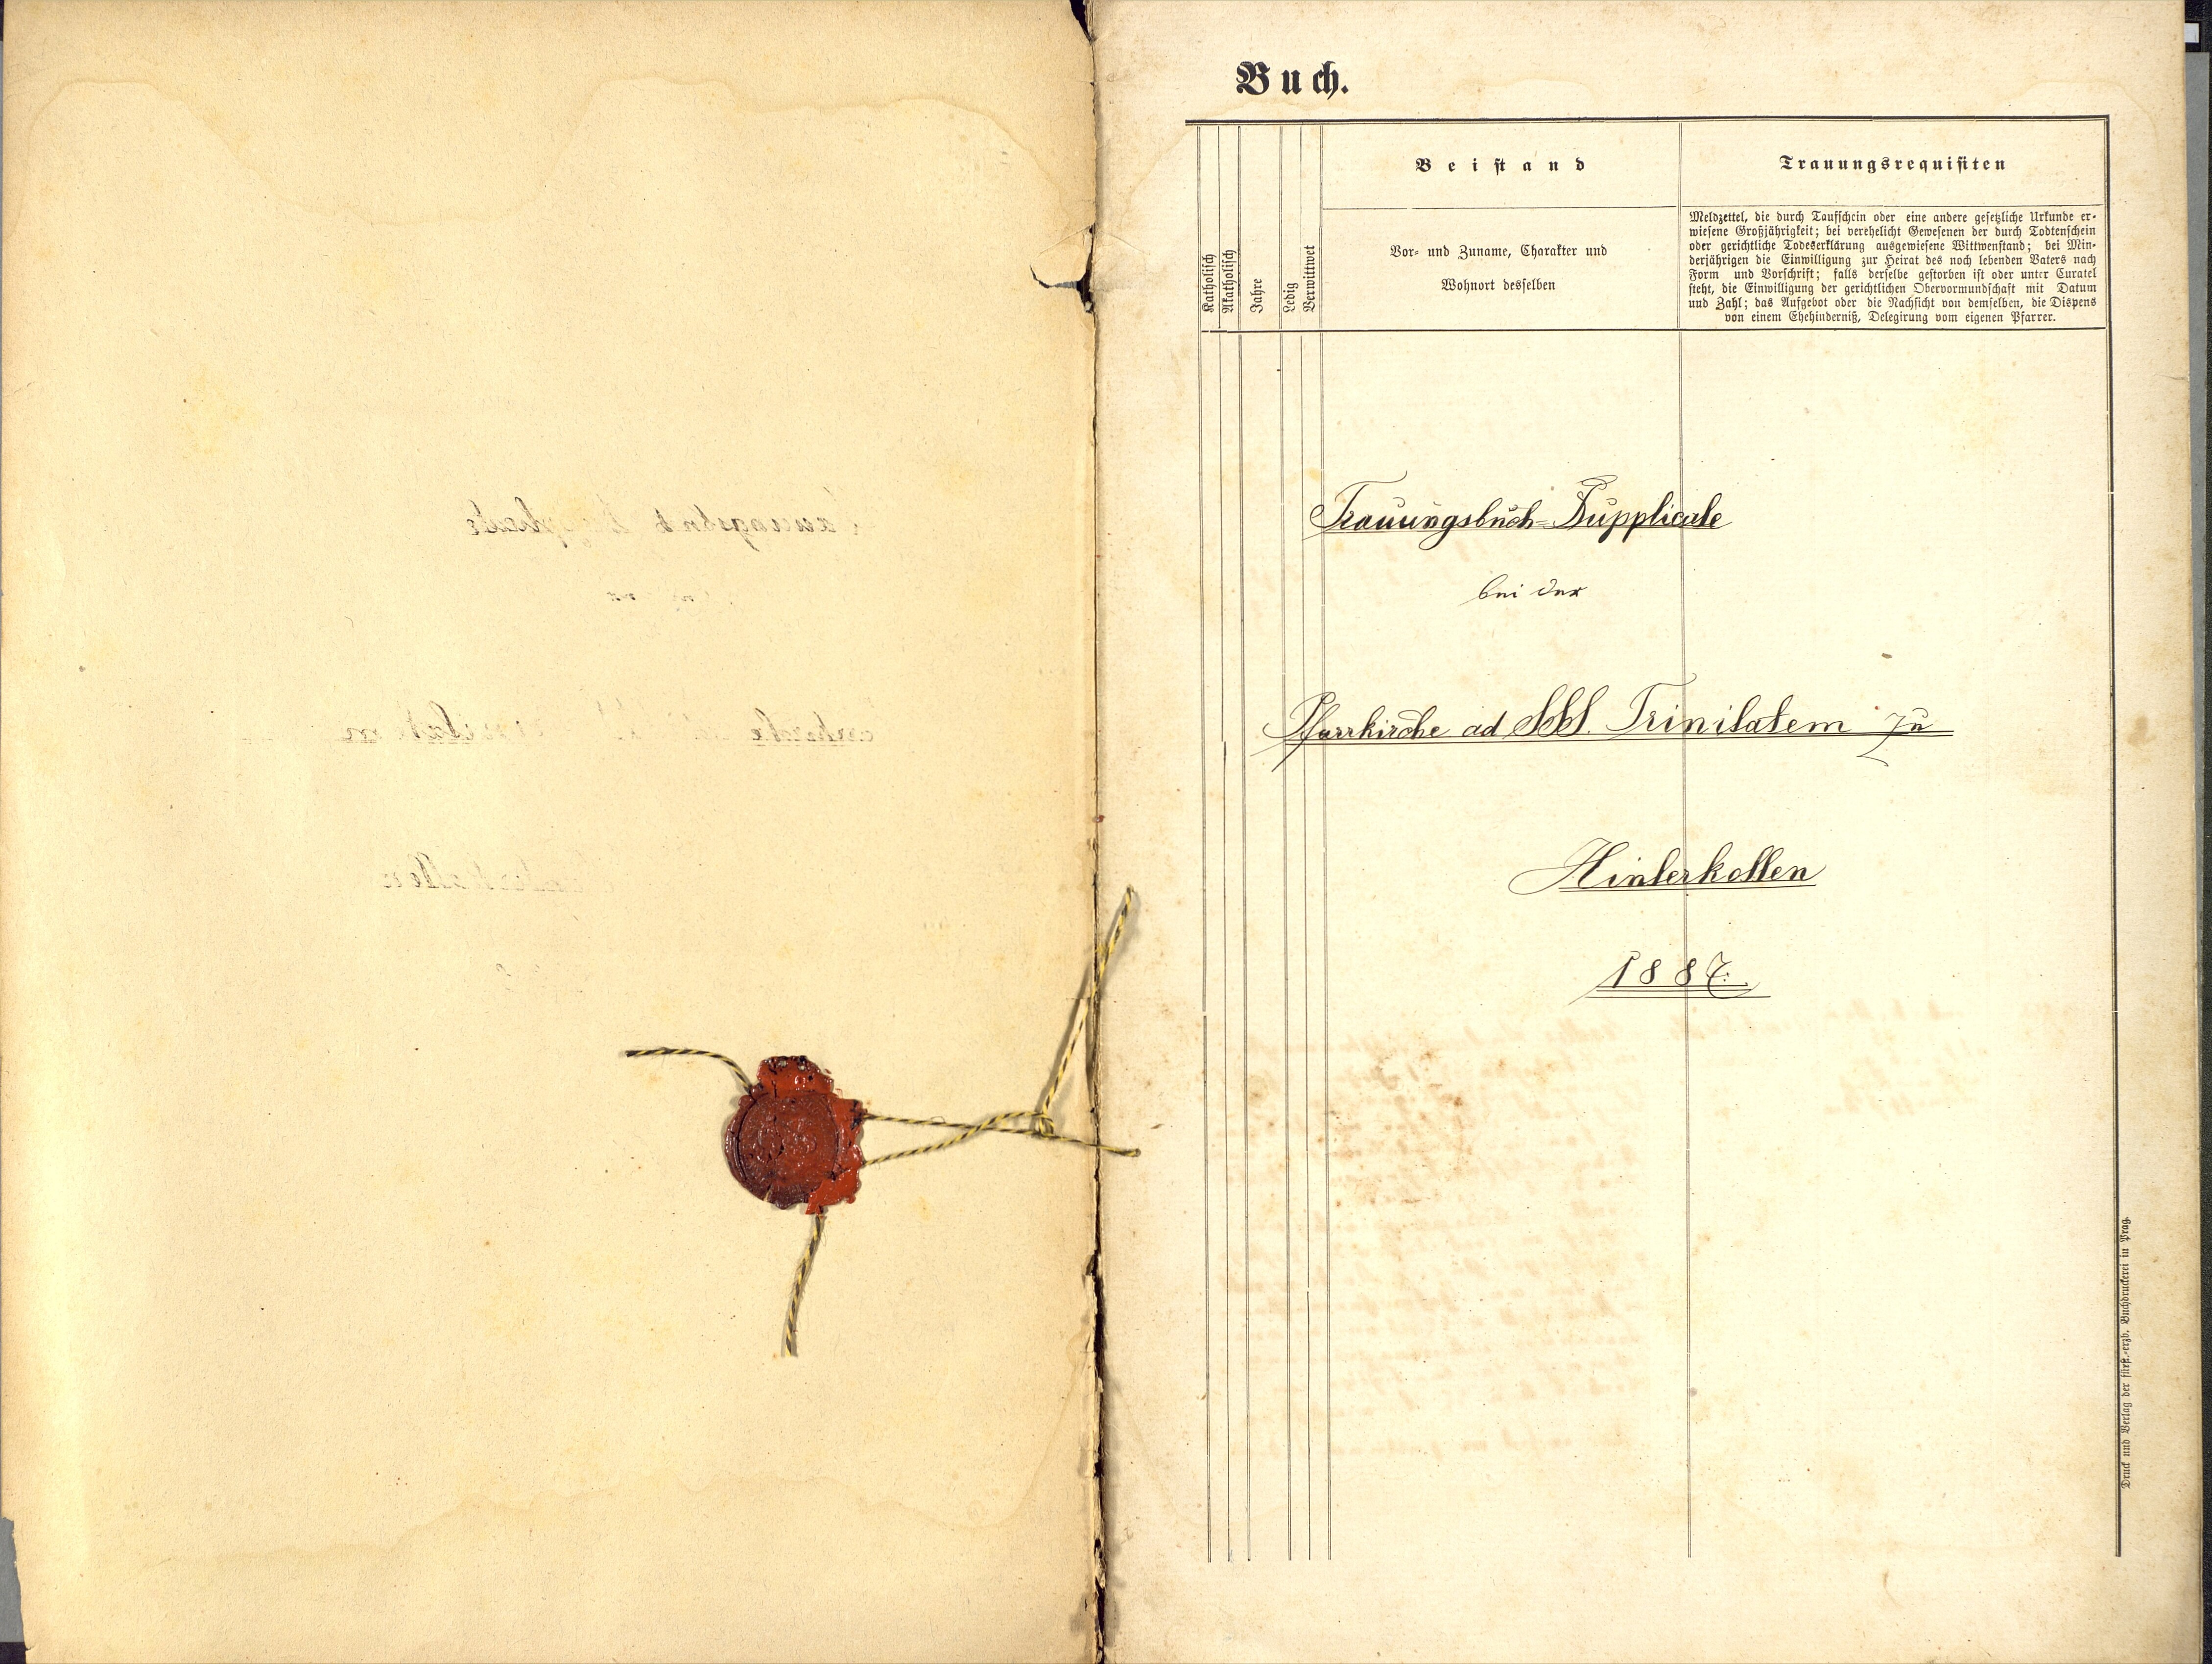 Buch.
Katholisch
Akatholisch
Jahre
Ledig
Verwittwet
Beistand
Vor- und Zuname, Charakter und
Wohnort desselben
Trauungsrequisiten
Meldzettel, die durch Taufschein oder eine andere gesetzliche Urkunde er-
wiesene Großjährigkeit; bei verehelicht Gewesenen der durch Todtenschein
oder gerichtliche Todeserklärung ausgewiesene Wittwenstand; bei Min-
derjährigen die Einwilligung zur Heirat des noch lebenden Vaters nach
Form und Vorschrift; falls derselbe gestorben ist oder unter Curatel
steht, die Einwilligung der gerichtlichen Obervormundschaft mit Datum
und Zahl; das Aufgebot oder die Nachsicht von demselben, die Dispens
von einem Ehehinderniß, Delegirung vom eigenen Pfarrer.
Trauungsbuch-Dupplicate
bei der
Pfarrkirche ad SS. Trinitatem zu
Hinterkotten
1887.
Druck und Verlag der fürst.-erzb. Buchdruckerei in Prag.